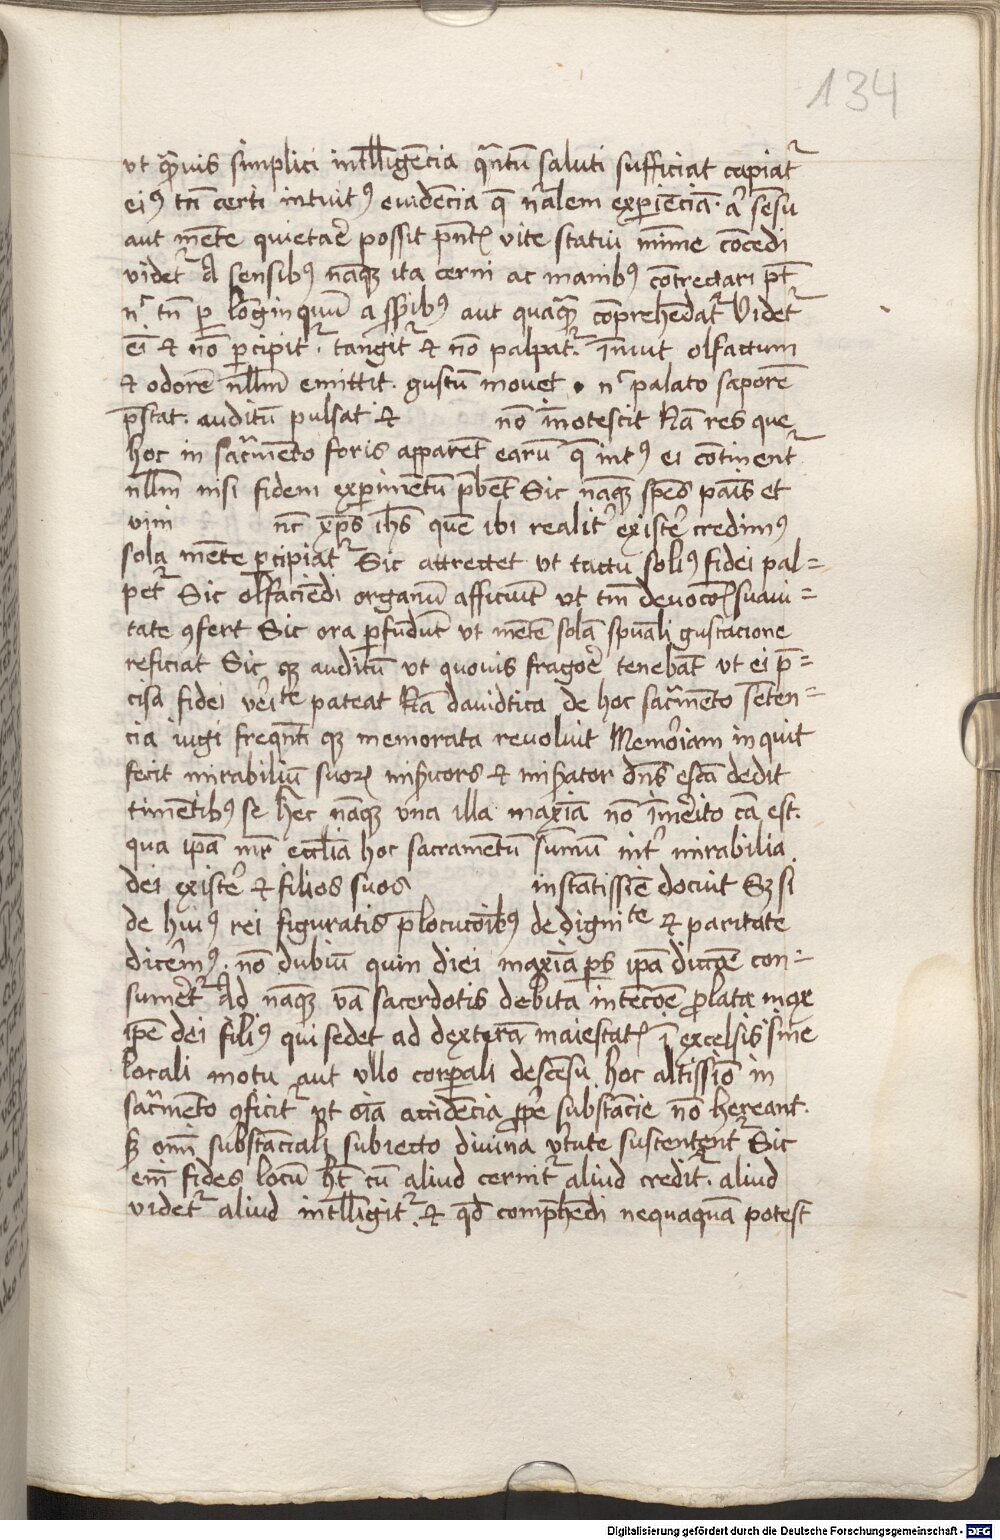 134
vt qͣmuis simplici intll̅ige̅cia qͣntu̅ saluti sufficiat capiatᷣ
eiꝰ tn̅ certi intuitꝰ euide̅cia q̅ nr̅alem exp̱ie̅cia̅. aᷣ se̅su
aut me̅te quietar̛e possit pn̅tꝭ vite statui mi̅me co̅cedi
videtᷣ A sensibꝰ na̅qꝫ ita cerni ac manibꝰ co̅trectari pt̅
nᷣ tn̅ ꝑ lo̅ginquu̅ a sp̅ibꝰ aut quaqͣꝫ co̅prehe̅datᷣ Videtᷣ
ei̅ et no̅ ꝑcipitᷣ. tangitᷣ et no̅ palpatᷣ. i̅nuit olfactum
et odore̅ nll̅m emittit. gustu̅ mouet . nᷣ palato sapore̅
p̅stat. auditu̅ pulsat et no̅ i̅notescit Na̅ res que
hoc in sacͣme̅to foris appare̅t earu̅ q̅ intꝰ ei co̅tinentᷣ
nll̅m nisi fidem exꝑime̅tu̅ p̅bet Sic na̅qꝫ sp̅es pa̅is et
vini nc̅ xp̅s ih̅s que̅ ibi realitᷣ existe̛ credimꝰ
sola me̅te ꝑcipiatᷣ Sic attrectet vt tactu soliꝰ fidei pal=
petᷣ Sic olfacie̅di organu̅ afficiu̅t vt tm̅ deuoco̅ꝭ suaui=
tate ꝯfert Sic ora ꝑfundu̅t vt me̅te̅ sola̅ spu̅ali gustacione
reficiat Sic qꝫ auditu̅ vt quouis fragoe̛ teneba̅t vt ei p̅=
cisa fidei ve̛ite pateat Na̅ dauidtica de hoc sacͣme̅to se̅ten=
cia iugi freqn̅ti qꝫ memorata reuoluit Memơiam inquit
fecit mirabiliu̅ suoꝝ mi̅sicors et mi̅sator dn̅s esca̅ dedit
time̅tibꝰ se hec na̅qꝫ vna illa maxi̅a no̅ i̅me̛ito ca̅ est.
qua ipa̅ mr̅ eccl̅ia hoc sacramentu̅ su̅mu̅ intᷣ mirabilia
dei existe̛ et filios suos instantissi̅e docuit Sꝫ si
de huiꝰ rei figuratis p̅locuco̅ibꝰ de dignite et paritate
dice̛mꝰ. no̅ dubiu̅ quin diei maxi̅a ps̅ ipa̅ dicco̅e con=
sume̛tᷣ Ad na̅qꝫ va̅ sacerdotis debita inteco̅e ꝓlata mox
ipe̅ dei filiꝰ qui sedet ad dextera̅ maiestatꝭ i̅ excelsis sine
locali motu aut vllo corꝑali desce̅su hoc altissi̅o in
sacͣme̅to ꝯficitᷣ vt oi̅a accide̅cia ꝓpe̛ substa̅cie no̅ hereant.
sꝫ omi̅ substa̅ciali subiecto diuina v̛tute sustententᷣ Sic
em̅ fides locu̅ ht̅ cu̅ aliud cernitᷣ aliud creditᷣ. aliud
videtᷣ aliud intll̅igitᷣ. et qd̅ comp̅he̅di nequaqua̅ potest
Digitalisierung gefördert durch die Deutsche Forschungsgemeinschaft - DFG